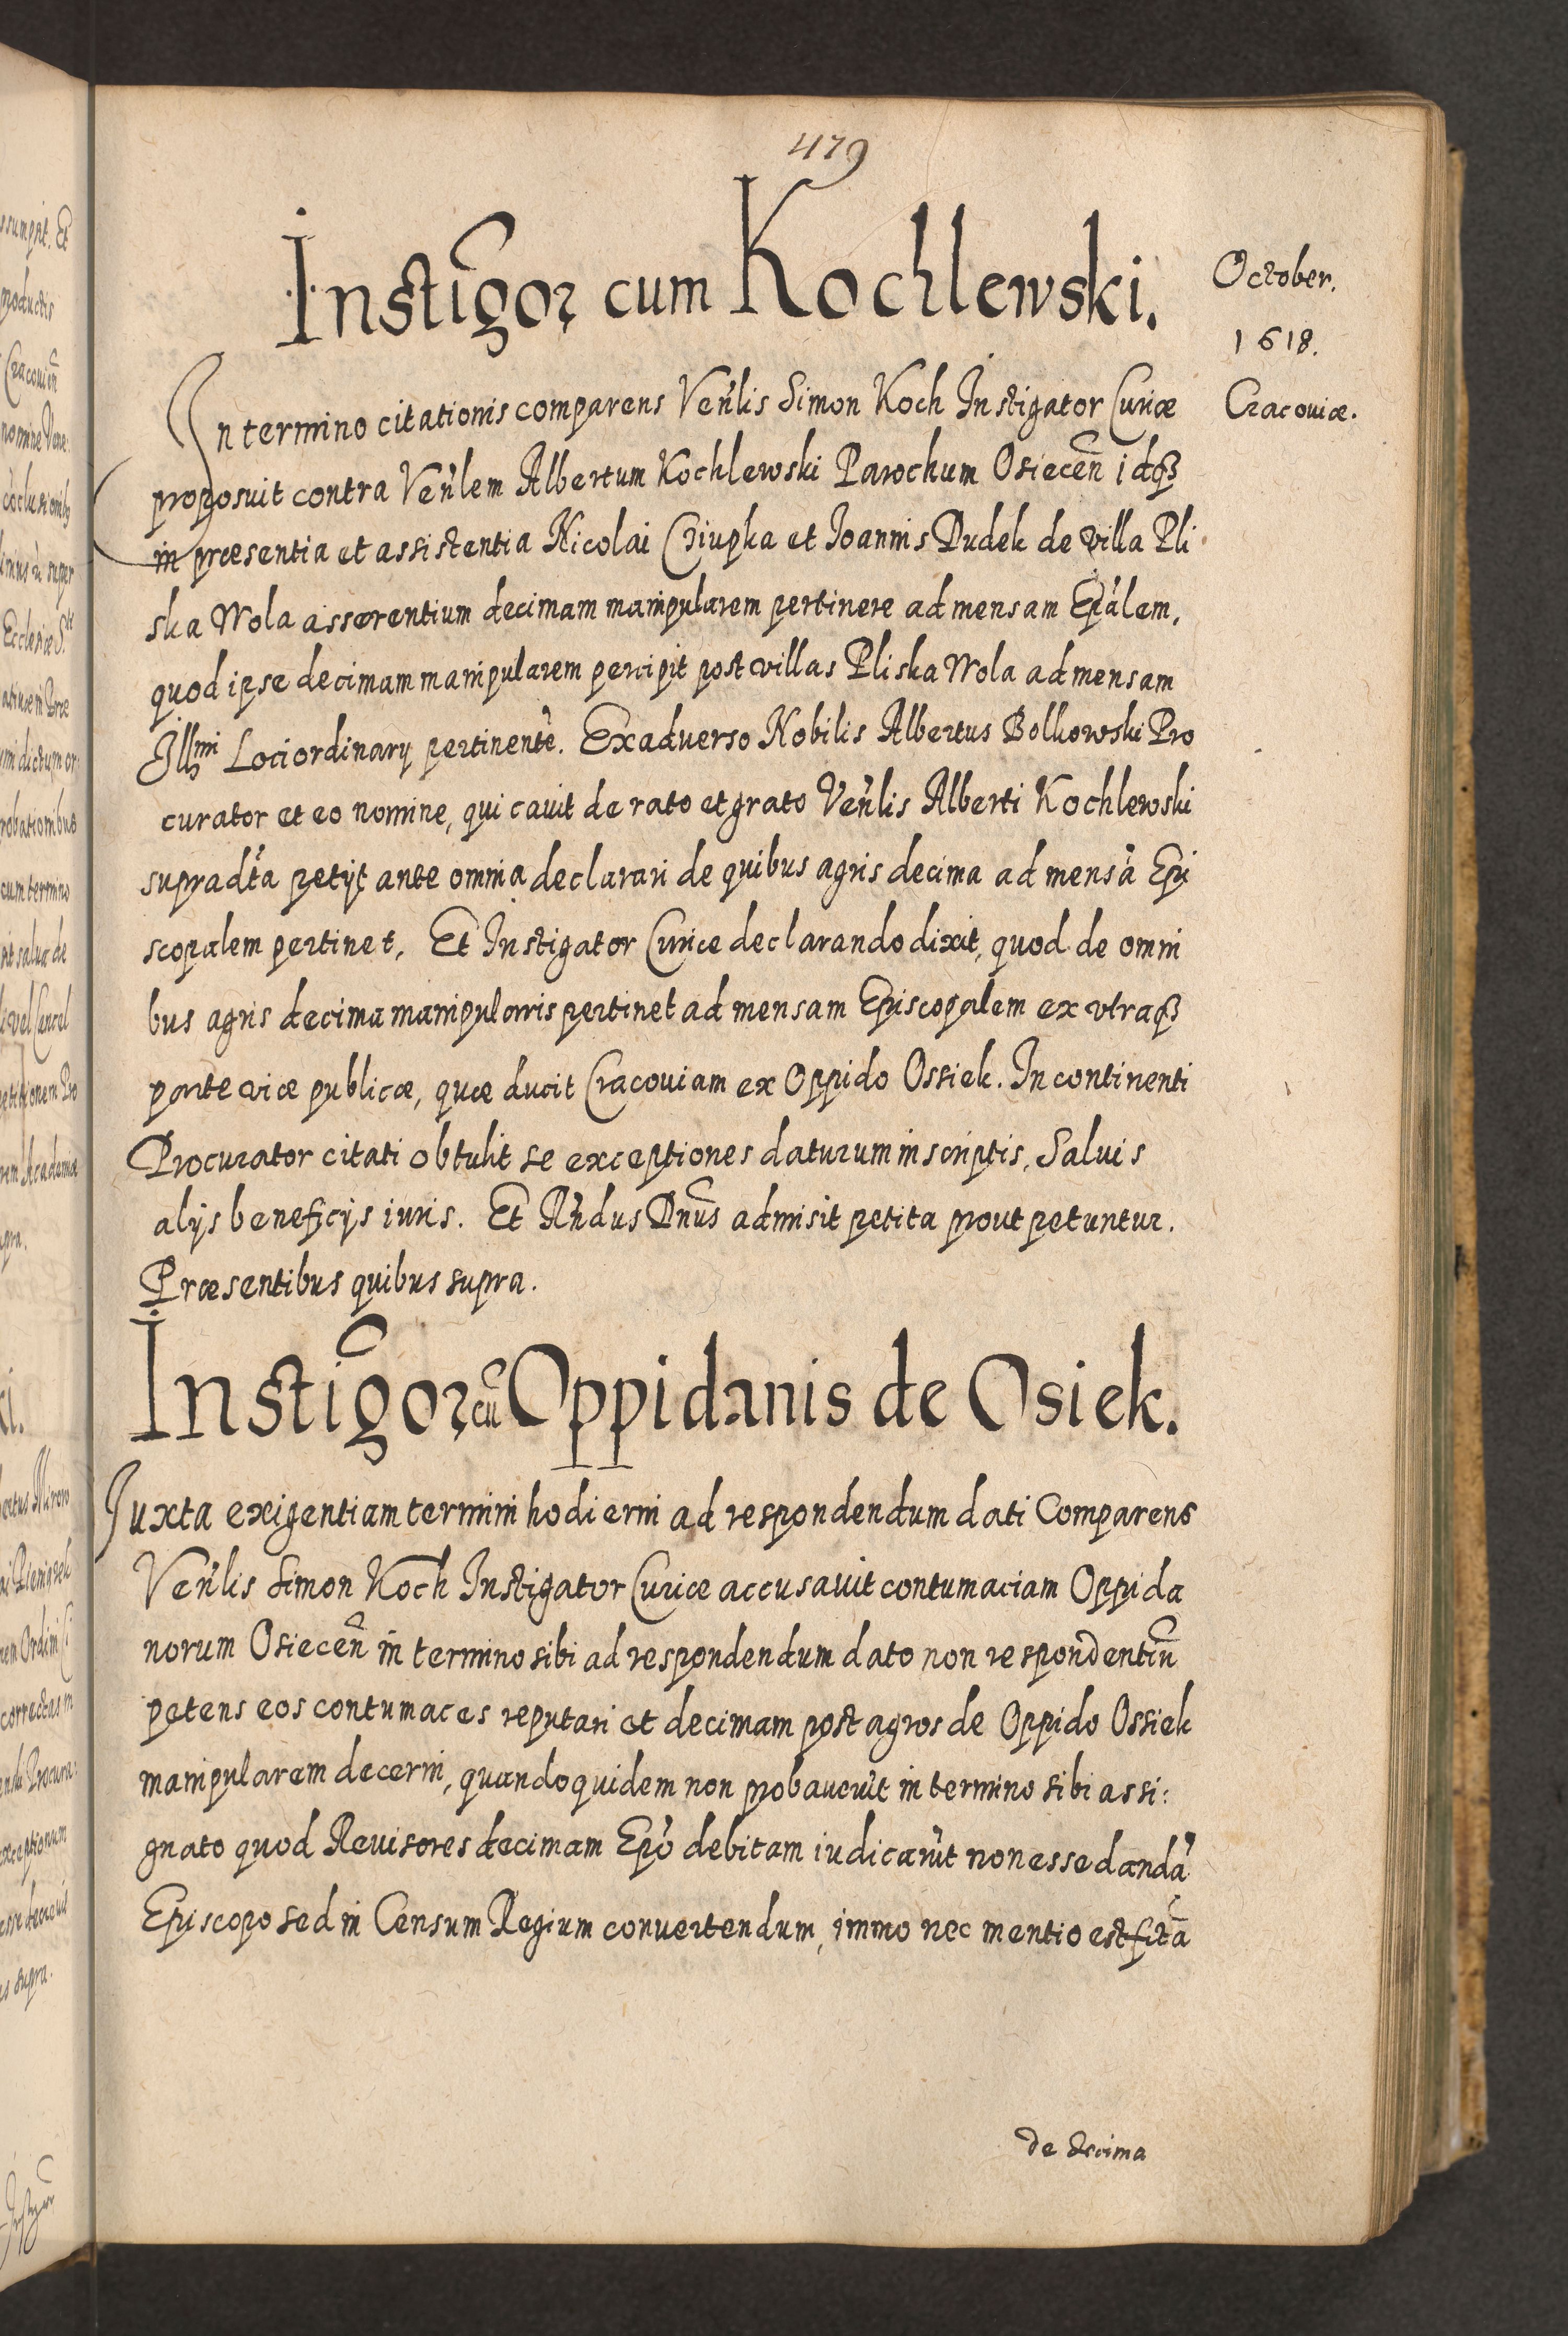 479
Instig̃oꝛ cum Kochlewski.
October.
1618.
Cracouiæ.
In termino citationis comparens Ven̓lis Simon Koch Instigator Curiæ
proposuit contra Ven̓lem Albertum Kochlewski Parochum Osiecen̄ idqꝫ
in præsentia et assistentia Nicolai Criupka et Ioannis Dudek de villa Pli
ska Wola asserentium decimam manipularem pertinere ad mensam Ep̓alem,
quod ipse decimam manipularem percipit post villas Pliska Wola ad mensam
Illmi Loci ordinarij pertinente̓. Ex aduerso Nobilis Albertus Bolkowski Pro
curator et eo nomine, qui cauit de rato et grato Ven̓lis Alberti Kochlewski
supradt̓a petijt ante omnia declarari de quibus agris decima ad mensa̓ Epi
scopalem pertinet. Et Instigator Curiæ declarando dixit, quod de omni
bus agris decima manipularis pertinet ad mensam Episcopalem ex vtraqꝫ
parte viæ publicæ, quæ ducit Cracouiam ex Oppido Ossiek. In continenti
Procurator citati obtulit se exceptiones daturum in scriptis, Saluis
alijs beneficijs iuris. Et Rn̓dus Dn̄us admisit petita prout petuntur.
Præsentibus quibus supra.
Instig̃oꝛ cū Oppidanis de Osiek.
Iuxta exigentiam termini hodierni ad respondendum dati Comparens
Ven̓lis Simon Koch Instigator Curiæ accusauit contumaciam Oppida
norum Osiecen̄ in termino sibi ad respondendum dato non respondentiū
petens eos contumaces reputari et decimam post agros de Oppido Ossiek
manipularem decerni, quandoquidem non probaueru̓t in termino sibi assi:
gnato quod Reuisores decimam Epo̓ debitam iudicaru̓t non esse danda̓
Episcopo sed in Censum Regium conuertendum, immo nec mentio est fctā
de decima